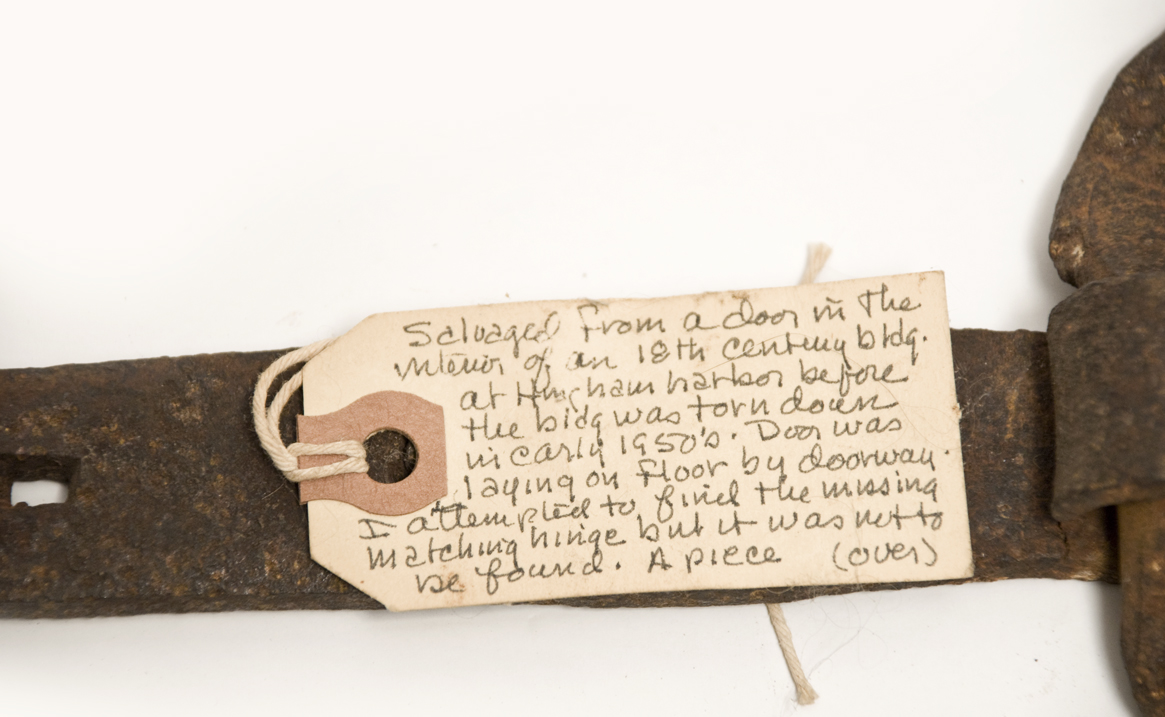 Salvaged from a door in the
interior of an 18th century bldg.
at Hingham harbor before
the bldg was torn down
in early 1950's. Door was
laying on floor by doorway.
I attempted to find the missing
matching hinge but it was not to
be found. A piece (over)